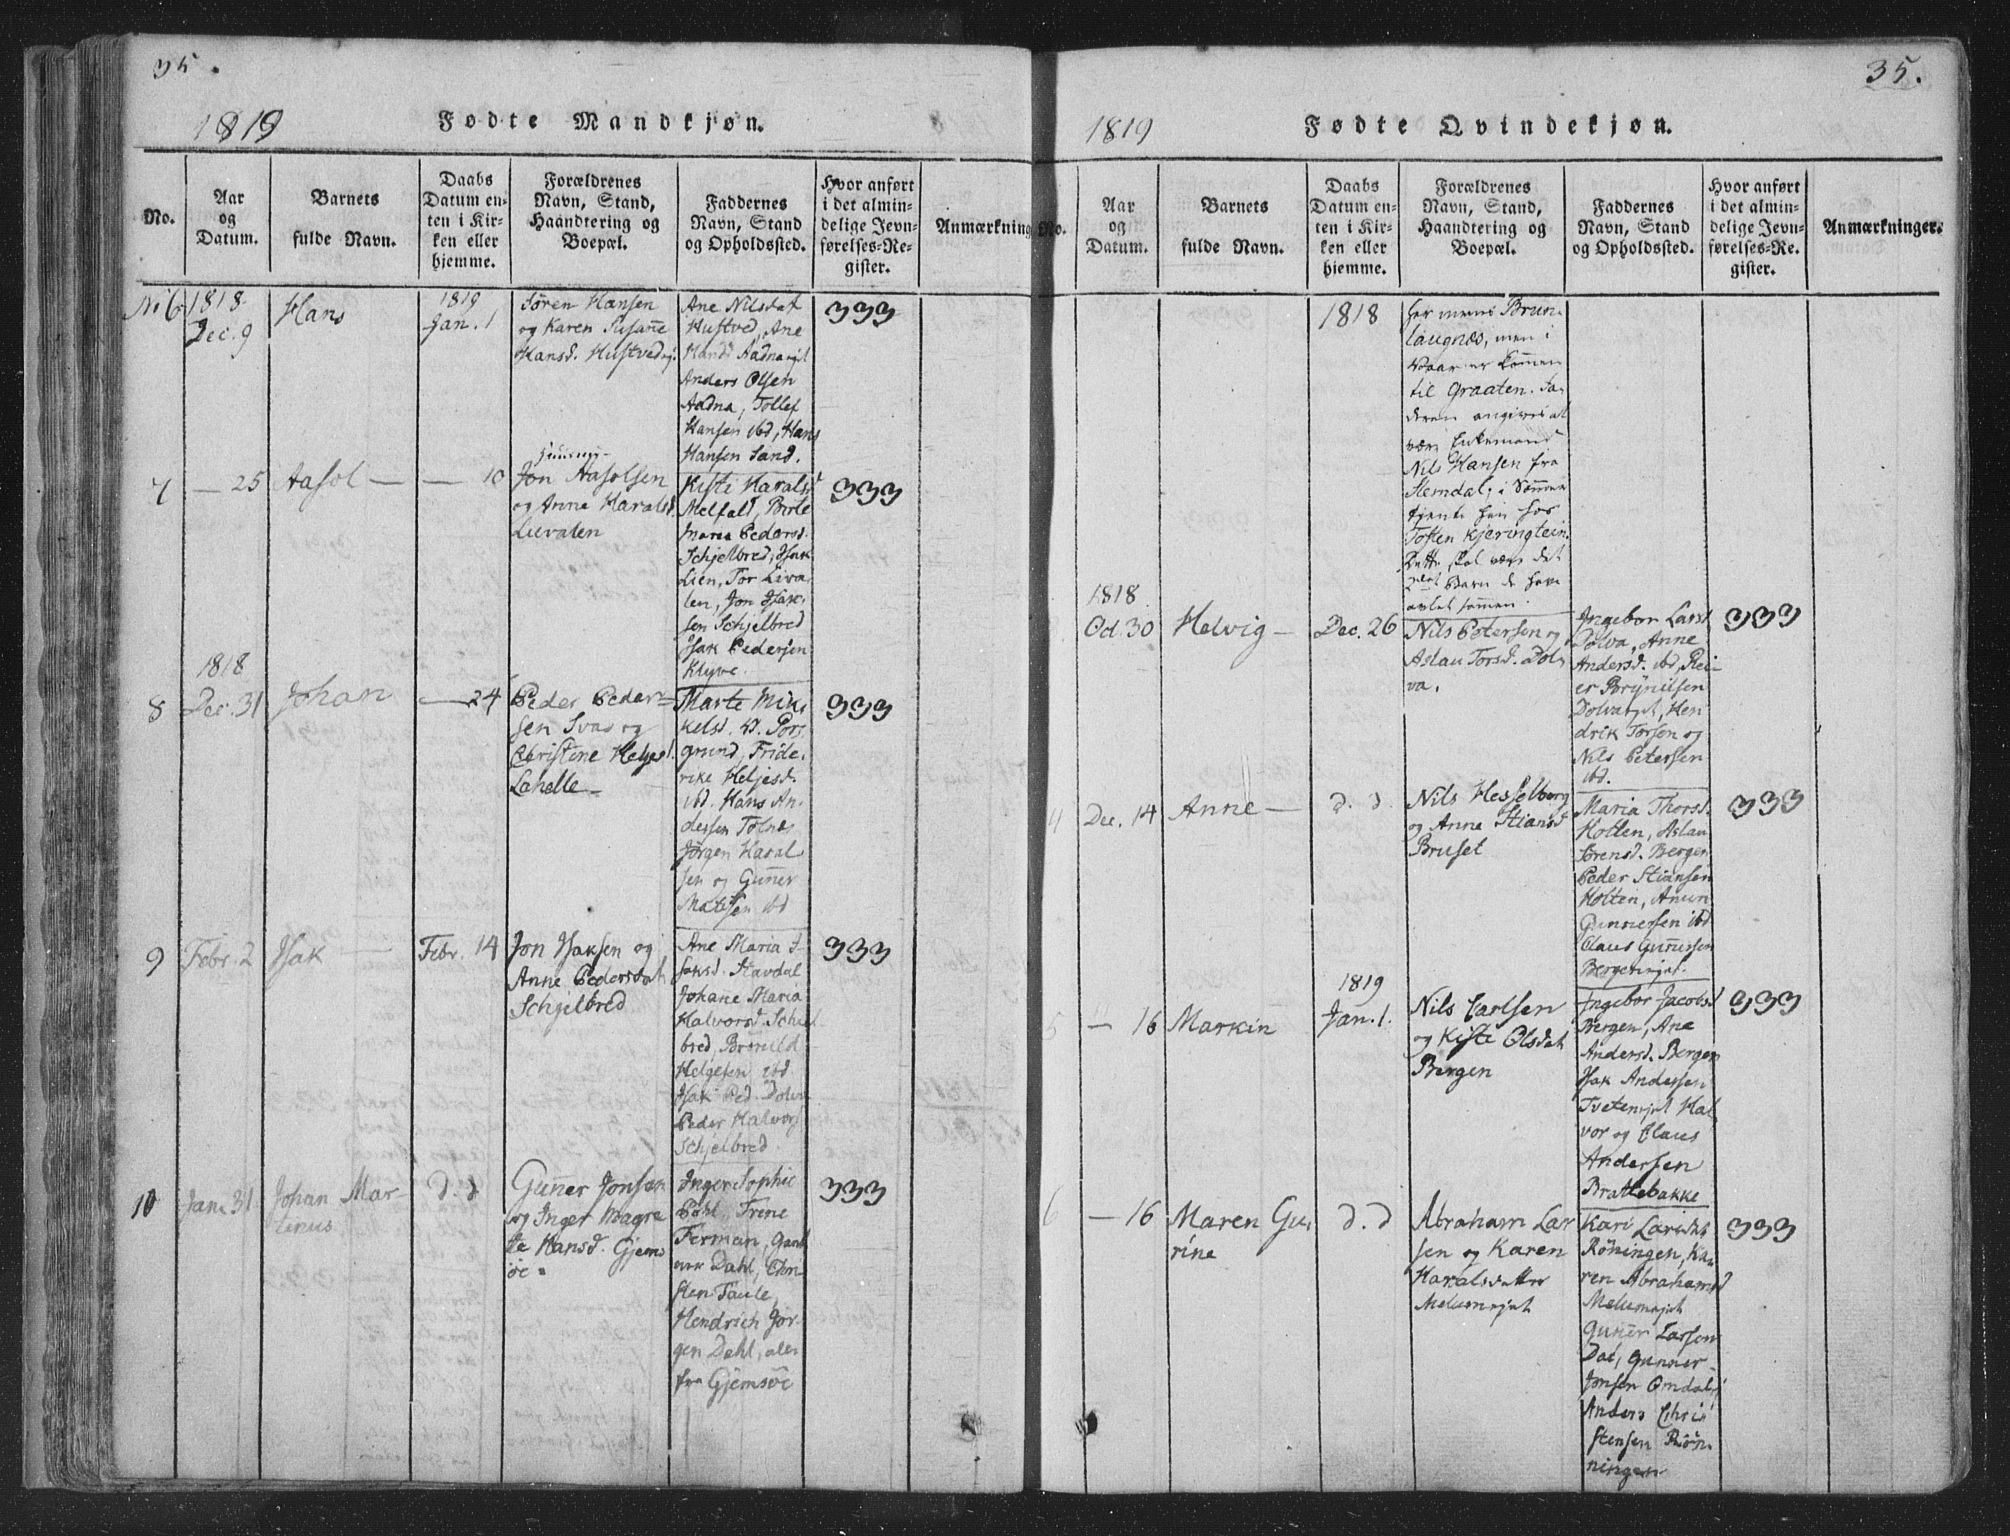 35.
1819
Fødte Mandkjøn.
No.
Aar
og
Datum.
Barnets
fulde Navn.
Daabs
Datum en-
ten i Kir-
ken eller
hjemme.
Forældrenes
Navn, Stand,
Haandtering og
Boepæl.
Faddernes
Navn, Stand
og Opholdssted.
Hvor anført
i det almin-
delige Jevn-
førelses-Re-
gister.
Anmærkning
No 6
1818
Dec. 9
Hans
1819
Jan. 1
Søren Hansen
og Karen Susane
Hansd. Hustvedej.
Ane Nilsdat
Hustved, Ane
Hansd Aadnaejet
Anders Olsen
Aadna, Tollef
Hansen ibd, Hans
Hansen Sand.
333
7
— 25
Aasol —
— 10
Jon Aasolsen
og Anne Haralsd.
Lievalen
Kisti Haralsd
Melfald, Birte
Maria Pedersd.
Schjelbred, Isak
Lien, Tor Liva-
len, Jon Isak-
sen Schjelbred
Isak Pedersen
Klyve.
333
8
1818
Dec. 31
Johan
— 24
Peder Peder-
sen Svas og
Christine Heljesd.
Lahelle
Marte Mik-
kelsd. V. Pors-
grund, Fride-
rike Heljesd.
ibd. Hans An-
dersen Tolnæs
Jørgen Haral-
sen og Guner
Matisen ibd
333
9
Febr. 2
Isak
Febr. 14
Jon Isaksen og
Anne Pedersdat
Schjelbred
Ane Maria I-
saksd. Stavdal
Johane Maria
Halvorsd. Schjel-
bred, Brønild
Helgesen ibd
Isak Ped. Dolva
Peder Halvors
Schjelbred.
333
10
Jan. 31
Johan Mar-
tinus
d. d
Guner Jonsen
og Inger Magre-
te Hansd. Gjems-
øe
Inger Sophie
Pøhl, Trine
Ferman,
Dahl, Chri-
sten Taule,
Hendrich Jør-
gen Dahl, ale
fra Gjemsöe
333
35.
1819
Fødte Qvindekjøn.
No.
Aar
og
Datum.
Barnets
fulde Navn.
Daabs
Datum en-
ten i Kir-
ken eller
hjemme.
Forældrenes
Navn, Stand,
Haandtering og
Boepæl.
Faddernes
Navn, Stand
og Opholdssted.
Hvor anført
i det almin-
delige Jevn-
førelses-Re-
gister.
Anmærkninger.
1818
Brun-
laugnæs, men i
Vaar er kommen
til Graaten. Fa-
deren angives at
være Enkemand
Nils Hansen fra
Slemdal, i Sommer
tjente hun hos
Tosten Kjeringtein.
Dette skal være det
2det Barn de have
avlet sammen.
1818
Oct. 30
Helvig —
Dec. 26
Nils Petersen og
Aslau Torsd. Dol-
va.
Ingebor Larsd
Dolva, Anne
Andersd. ibd, Rei-
er Brynilsen
Dolvaejet, Hen-
drik Torsen og
Nils Petersen
ibd.
333
4
Dec. 14
Anne —
d. d
Nils Hesselberg
og Anne Stiansd
Bruset
Maria Thorsd.
Holten, Aslau
Sørensd. Bergen
Peder Stiansen
Holten, Amun
Gunnersen ibd
Claus Gunersen
Bergensejet.
333
5
— 16
Markin
1819
Jan. 1.
Nils Carlsen
og Kisti Olsdat
Bergen
Ingebor Jacobsd
Bergen, Ane
Andersd. Bergen
Isak Andersen
Tvetenejet Hal-
vor og Claus
Andersen
Brattebakke
333
6
— 16
Maren Gu-
rine
d. d
Abraham Lar-
sen og Karen
Haralsdatter
Melumejet
Kari Larsdat
Röningen, Ka-
ren Abrahamsd
Melumejet
Guner Larsen
Dal, Gunner
Jonsen Omdal,
Anders Chri-
stensen Røn-
ningen
333